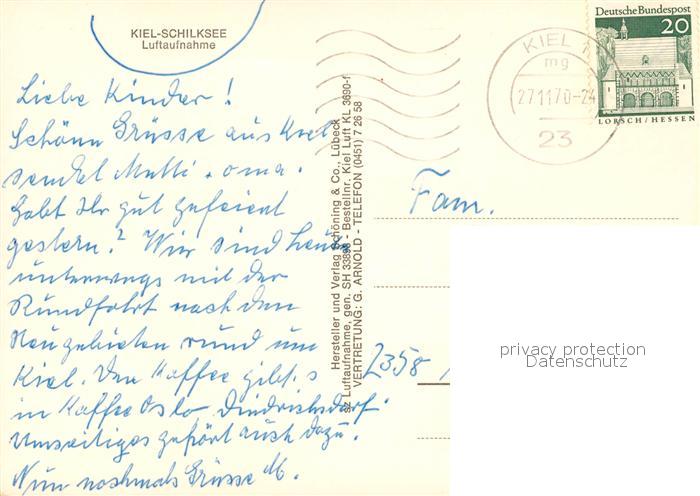 KIEL-SCHILKSEE
Luftaufnahme
Liebe Kinder!
Schöne Grüsse aus Kiel
sendet Mutti + oma.
Habt Ihr gut gefeiert
gestern? Wir sind heute
unterwegs mit der
Rundfahrt nach den
Neugebieten rund um
Kiel. Den Kaffee gibt's
in Kaffee Oslo, Diedrichsdorf.
Umseitiges gehört auch dazu.
Nun nochmals Grüsse M.
Hersteller und Verlag Schöning & Co., Lübeck
sz Luftaufnahme, gen. SH 33898 - Bestellnr. Kiel Luft KL 3690-f
VERTRETUNG: G. ARNOLD - TELEFON (0451) 7 26 58
KIEL 1
mg
27.11.70-24
23
Deutsche Bundespost
20
LORSCH/HESSEN
Fam.
2358
privacy protection
Datenschutz